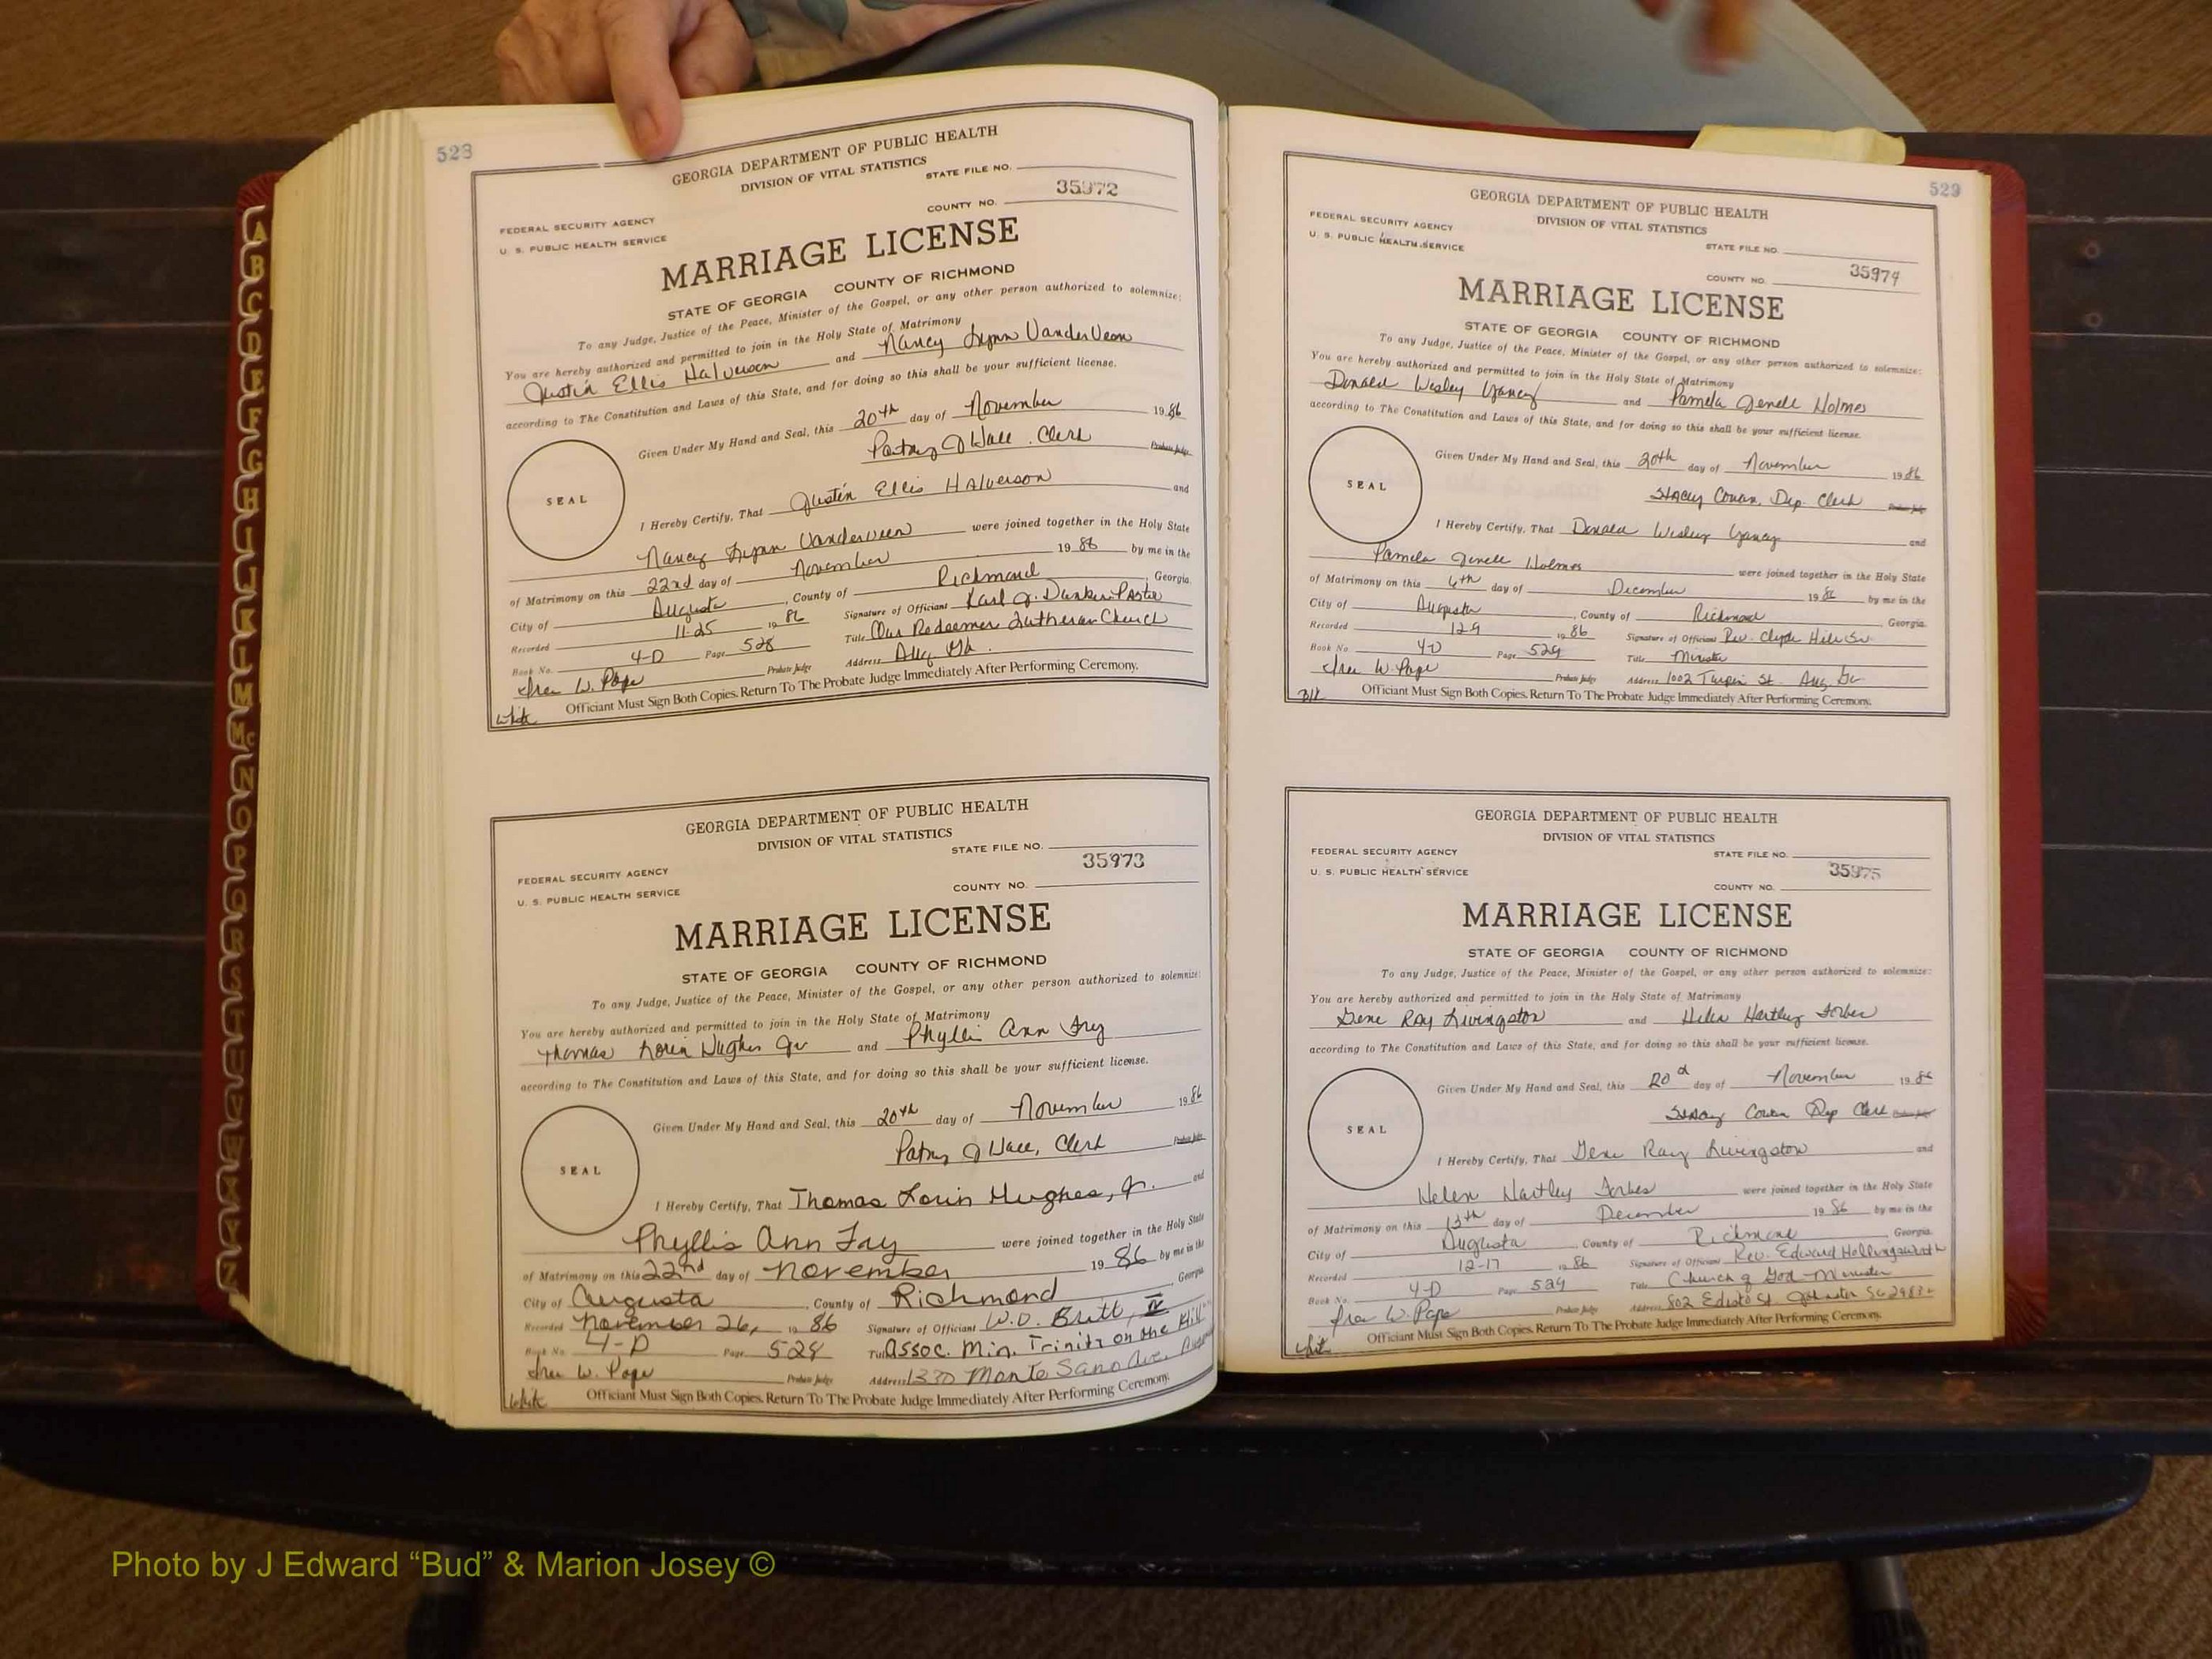 528
GEORGIA DEPARTMENT OF PUBLIC HEALTH
DIVISION OF VITAL STATISTICS
STATE FILE NO.
35972
FEDERAL SECURITY AGENCY
U. S. PUBLIC HEALTH SERVICE
COUNTY NO.
MARRIAGE LICENSE
STATE OF GEORGIA COUNTY OF RICHMOND
To any Judge, Justice of the Peace, Minister of the Gospel, or any other person authorized to solemnize:
You are hereby authorized and permitted to join in the Holy State of Matrimony
Justin Ellis Halverson and Nancy Lynn VanderVeen
according to The Constitution and Laws of this State, and for doing so this shall be your sufficient license.
Given Under My Hand and Seal, this 20th day of November 1986
Clerk Probate Judge
SEAL
I Hereby Certify, That Justin Ellis Halverson and
Nancy Lynn Vanderveen were joined together in the Holy State
of Matrimony on this 22nd day of November 1986 by me in the
City of Augusta, County of Richmond, Georgia.
Recorded 11-25 1986 Signature of Officiant Karl Pastor
Book No. 4-D Page 528 Title Our Redeemer Lutheran Church
W. Pope Probate Judge Address Aug Ga.
White Officiant Must Sign Both Copies. Return To The Probate Judge Immediately After Performing Ceremony.
GEORGIA DEPARTMENT OF PUBLIC HEALTH
DIVISION OF VITAL STATISTICS
STATE FILE NO.
35973
FEDERAL SECURITY AGENCY
U. S. PUBLIC HEALTH SERVICE
COUNTY NO.
MARRIAGE LICENSE
STATE OF GEORGIA COUNTY OF RICHMOND
To any Judge, Justice of the Peace, Minister of the Gospel, or any other person authorized to solemnize:
You are hereby authorized and permitted to join in the Holy State of Matrimony
Thomas Lorin Hughes Jr and Phyllis Ann Fry
according to The Constitution and Laws of this State, and for doing so this shall be your sufficient license.
Given Under My Hand and Seal, this 20th day of November 1986
Clerk Probate Judge
SEAL
I Hereby Certify, That Thomas Lorin Hughes, Jr. and
Phyllis Ann Fry were joined together in the Holy State
of Matrimony on this 22nd day of November 1986 by me in the
City of Augusta, County of Richmond, Georgia
Recorded November 26, 1986 Signature of Officiant W.D. Britt, IV
Book No. 4-D Page 528 Title Assoc. Min. Trinity on the Hill
W. Pope Probate Judge Address 1330 Monte Sano Ave.
White Officiant Must Sign Both Copies. Return To The Probate Judge Immediately After Performing Ceremony.
529
GEORGIA DEPARTMENT OF PUBLIC HEALTH
DIVISION OF VITAL STATISTICS
FEDERAL SECURITY AGENCY
U. S. PUBLIC HEALTH SERVICE
STATE FILE NO.
35974
COUNTY NO.
MARRIAGE LICENSE
STATE OF GEORGIA COUNTY OF RICHMOND
To any Judge, Justice of the Peace, Minister of the Gospel, or any other person authorized to solemnize:
You are hereby authorized and permitted to join in the Holy State of Matrimony
Donald Wesley Yancey and Pamela Jenell Holmes
according to The Constitution and Laws of this State, and for doing so this shall be your sufficient license.
Given Under My Hand and Seal, this 20th day of November 1986
Stacey Cowan, Dep. Clerk Probate Judge
SEAL
I Hereby Certify, That Donald Wesley Yancey and
Pamela Jenell Holmes were joined together in the Holy State
of Matrimony on this 6th day of December 1986 by me in the
City of Augusta, County of Richmond Georgia.
Recorded 12-9 1986 Signature of Officiant Rev. Clyde Hill Sr.
Book No 4-D Page 529 Title Minister
W. Pope Probate Judge Address 1002 Turpin St. Aug, Ga
Blk Officiant Must Sign Both Copies. Return To The Probate Judge Immediately After Performing Ceremony.
GEORGIA DEPARTMENT OF PUBLIC HEALTH
DIVISION OF VITAL STATISTICS
FEDERAL SECURITY AGENCY
U. S. PUBLIC HEALTH SERVICE
STATE FILE NO.
35975
COUNTY NO.
MARRIAGE LICENSE
STATE OF GEORGIA COUNTY OF RICHMOND
To any Judge, Justice of the Peace, Minister of the Gospel, or any other person authorized to solemnize:
You are hereby authorized and permitted to join in the Holy State of Matrimony
Gene Ray Livingston and Helen Hartley Forbes
according to The Constitution and Laws of this State, and for doing so this shall be your sufficient license.
Given Under My Hand and Seal, this 20 day of November 1986
Stacey Cowan Dep Clerk Probate Judge
SEAL
I Hereby Certify, That Gene Ray Livingston and
Helen Hartley Forbes were joined together in the Holy State
of Matrimony on this 13th day of December 1986 by me in the
City of Augusta, County of Richmond Georgia.
Recorded 12-17 1986 Signature of Officiant Rev. Edward Hollingsworth
Book No. 4-D Page 529 Title Church of God-Minister
W. Pope Probate Judge Address 802 Edisto St Johnston SC 29832
White Officiant Must Sign Both Copies. Return To The Probate Judge Immediately After Performing Ceremony.
Photo by J Edward “Bud” & Marion Josey ©